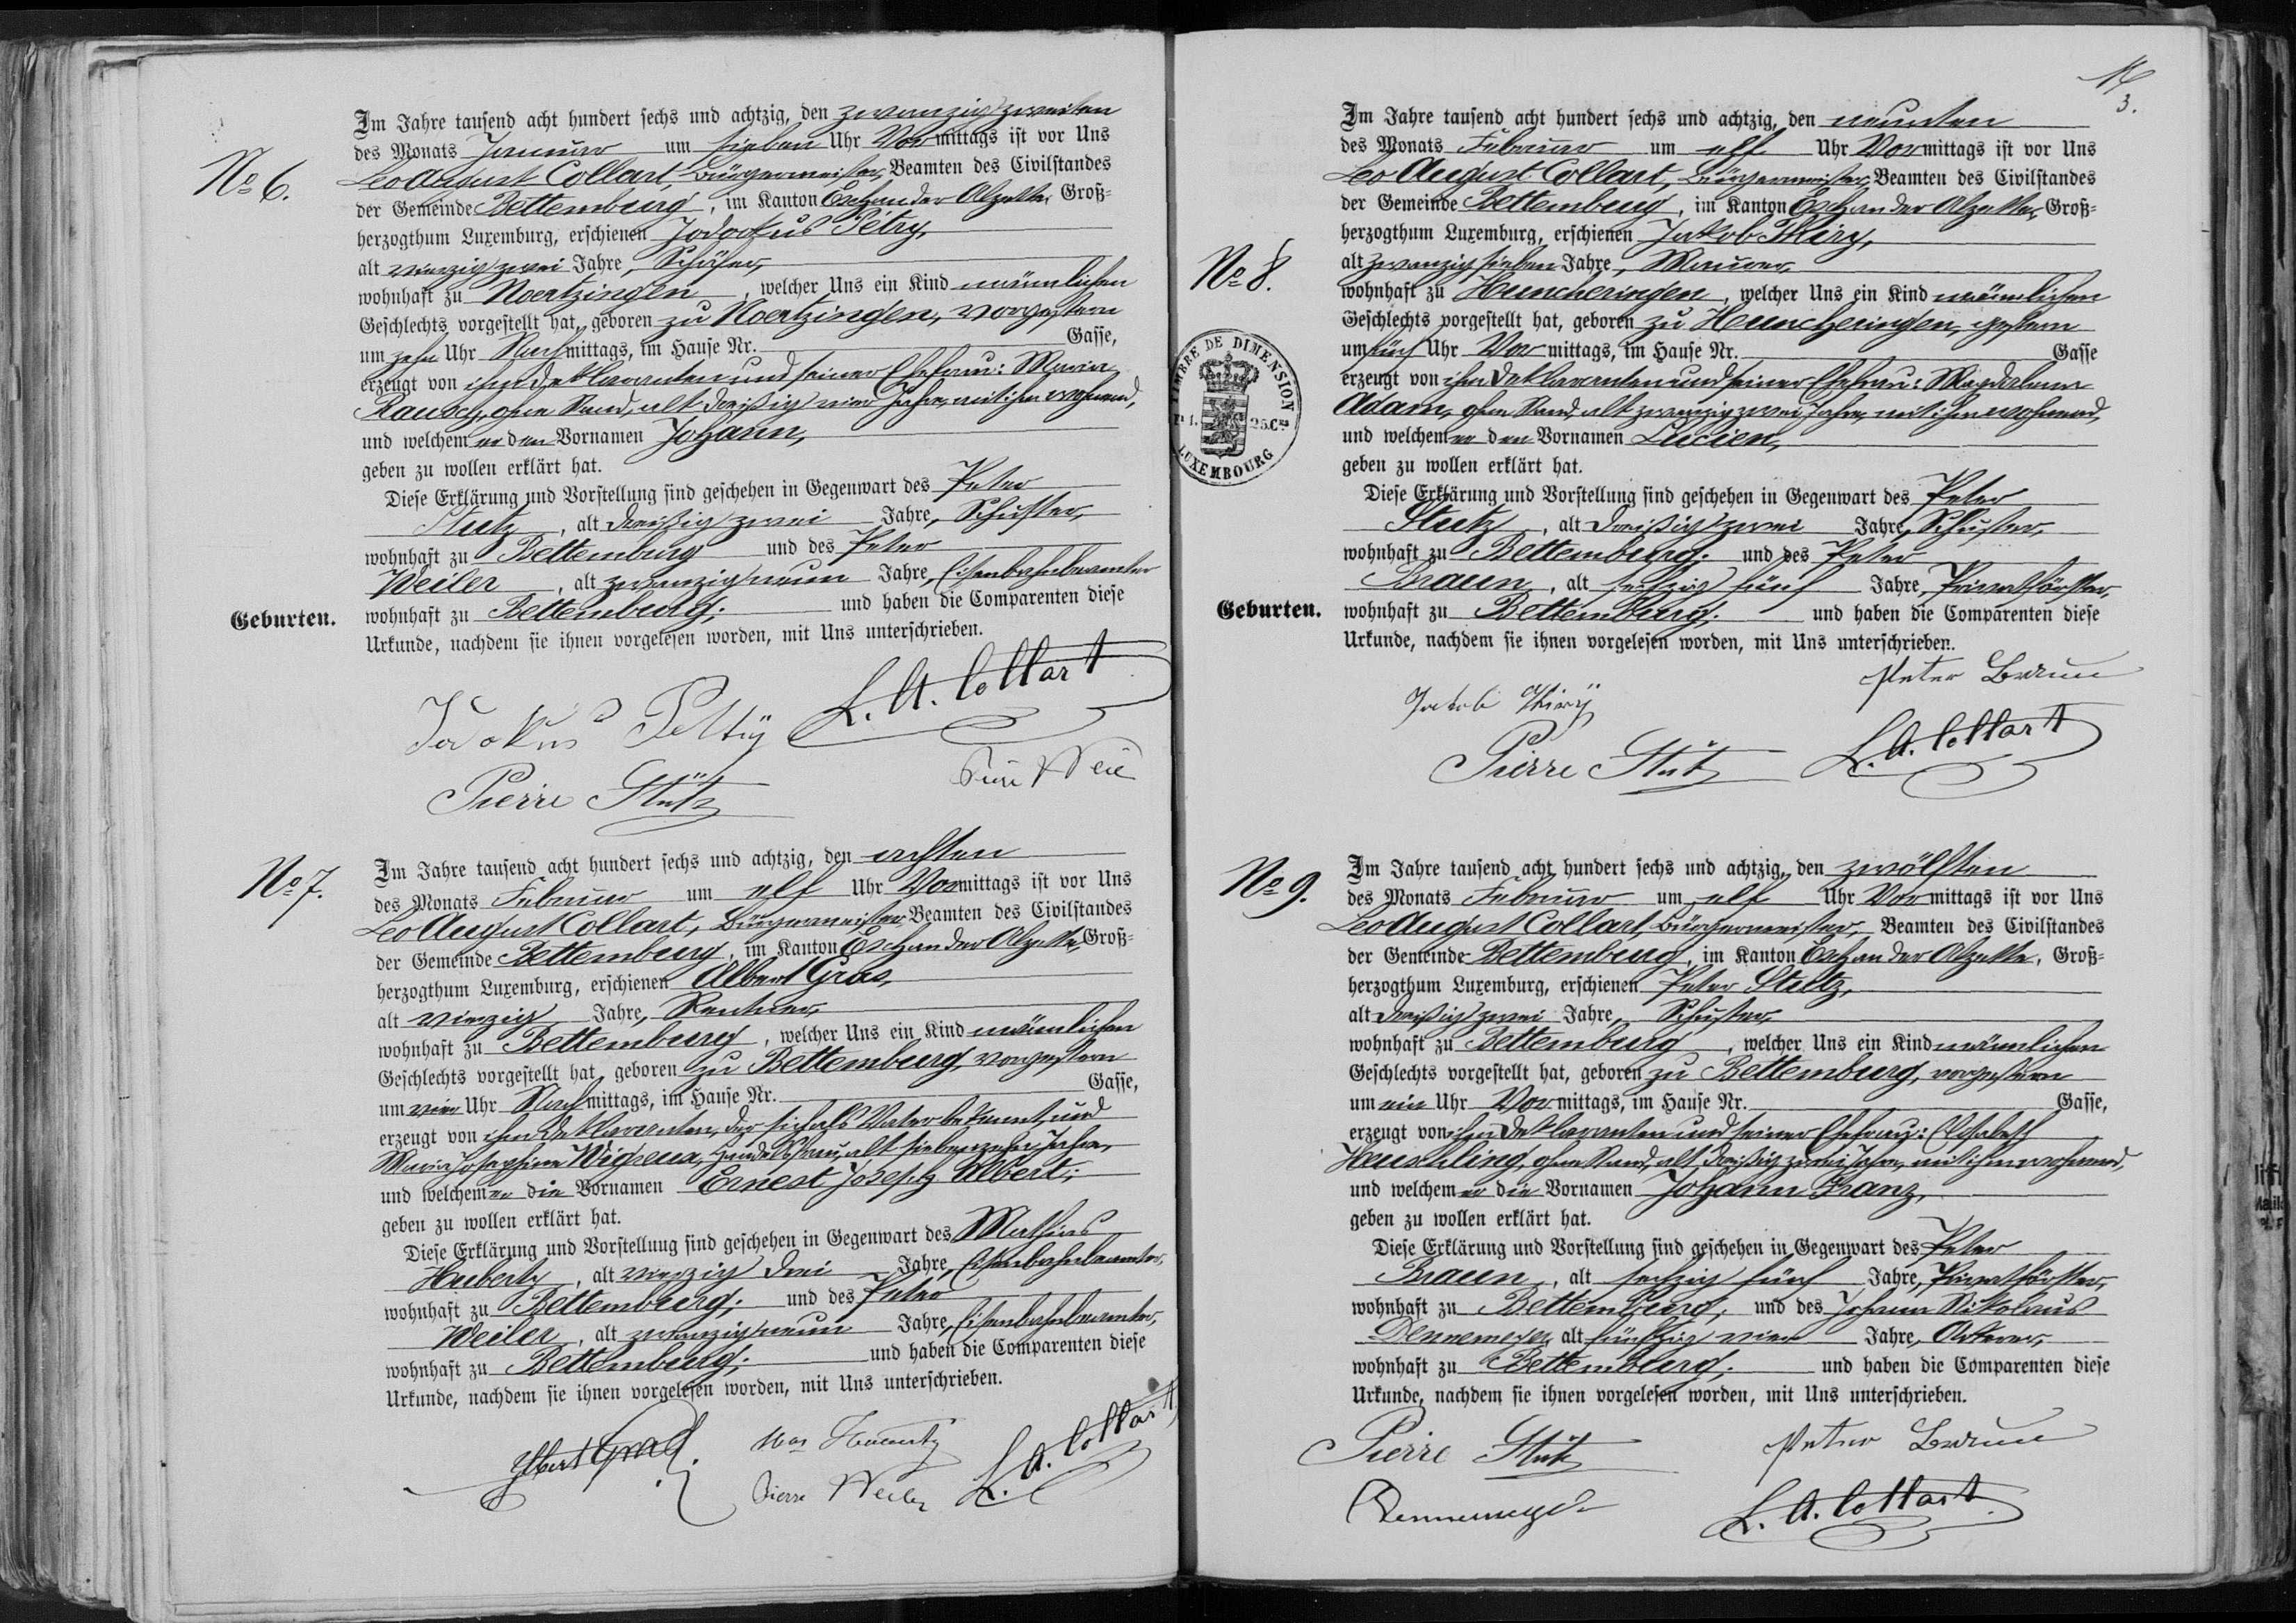 No 6.
Im Jahre tausend acht hundert sechs und achtzig, den zwanzig zweiten
des Monats Januar um sieben Uhr Vormittags ist vor Uns
Leo August Collart, Bürgermeister, Beamten des Civilstandes
der Gemeinde Bettemburg, im Kanton Esch an der Alzette, Groß-
herzogthum Luxemburg, erschienen Jodokus Pétry,
alt vierzig zwei Jahre, Schäfer,
wohnhaft zu Noertzingen, welcher Uns ein Kind männlichen
Geschlechts vorgestellt hat, geboren zu Noertzingen, vorgestern
um zehn Uhr Nachmittags, im Hause Nr. Gasse,
erzeugt von ihm Deklaranten und seiner Ehefrau: Maria
Rausch, ohne Stand, alt dreißig vier Jahre, mit ihm wohnend,
und welchem er den Vornamen Johann,
geben zu wollen erklärt hat.
Diese Erklärung und Vorstellung sind geschehen in Gegenwart des Peter
Stutz, alt dreißig zwei Jahre, Schuster,
wohnhaft zu Bettemburg und des Peter
Weiler, alt zwanzig neun Jahre, Eisenbahnbeamter
wohnhaft zu Bettemburg; und haben die Comparenten diese
Geburten.
Urkunde, nachdem sie ihnen vorgelesen worden, mit Uns unterschrieben.
Jodokus Pettry L. A. Collart
Pierre Stütz
No 7.
Im Jahre tausend acht hundert sechs und achtzig, den achten
des Monats Februar um elf Uhr Vormittags ist vor Uns
Leo August Collart, Bürgermeister, Beamten des Civilstandes
der Gemeinde Bettemburg, im Kanton Esch an der Alzette, Groß-
herzogthum Luxemburg, erschienen Albert Gras,
alt vierzig Jahre, Rentner,
wohnhaft zu Bettemburg, welcher Uns ein Kind männlichen
Geschlechts vorgestellt hat, geboren zu Bettemburg, vorgestern
um vier Uhr Nachmittags, im Hause Nr. Gasse,
erzeugt von ihm Deklaranten, der sich als Vater bekennt, und
Maria Josephine Wigreux, Handelsfrau, alt siebenzehn Jahre,
und welchem er die Vornamen Ernest Joseph Albert;
geben zu wollen erklärt hat.
Diese Erklärung und Vorstellung sind geschehen in Gegenwart des Mathias
Huberty, alt vierzig drei Jahre, Eisenbahnbeamter,
wohnhaft zu Bettemburg; und des Peter
Weiler, alt zwanzig neun Jahre, Eisenbahnbeamter,
wohnhaft zu Bettemburg; und haben die Comparenten diese
Urkunde, nachdem sie ihnen vorgelesen worden, mit Uns unterschrieben.
Albert Gras
Pierre Weiler L. A. Collart
3.
No 8.
Im Jahre tausend acht hundert sechs und achtzig, den neunten
des Monats Februar um elf Uhr Vormittags ist vor Uns
Leo August Collart, Bürgermeister, Beamten des Civilstandes
der Gemeinde Bettemburg, im Kanton Esch an der Alzette, Groß-
herzogthum Luxemburg, erschienen Jakob Thiry,
alt zwanzig sieben Jahre, Maurer,
wohnhaft zu Huncheringen, welcher Uns ein Kind männlichen
Geschlechts vorgestellt hat, geboren zu Huncheringen, gestern
um fünf Uhr Vormittags, im Hause Nr. Gasse
erzeugt von ihm Deklaranten und seiner Ehefrau: Magdalena
Adam, ohne Stand, alt zwanzig zwei Jahre, mit ihm wohnend,
und welchem er den Vornamen Lucien,
geben zu wollen erklärt hat.
TIMBRE DE DIMENSION
F 1. 25.Cs
LUXEMBOURG
Diese Erklärung und Vorstellung sind geschehen in Gegenwart des Peter
Stutz, alt dreißig zwei Jahre, Schuster,
wohnhaft zu Bettemburg; und des Peter
Braun, alt sechzig fünf Jahre, Privatförster,
wohnhaft zu Bettemburg; und haben die Comparenten diese
Geburten.
Urkunde, nachdem sie ihnen vorgelesen worden, mit Uns unterschrieben.
Peter Braun
Jakob Thiry
Pierre Stütz L. A. Collart
No 9.
Im Jahre tausend acht hundert sechs und achtzig, den zwölften
des Monats Februar um elf Uhr Vormittags ist vor Uns
Leo August Collart, Bürgermeister, Beamten des Civilstandes
der Gemeinde Bettemburg, im Kanton Esch an der Alzette, Groß-
herzogthum Luxemburg, erschienen Peter Stutz,
alt dreißig zwei Jahre, Schuster,
wohnhaft zu Bettemburg, welcher Uns ein Kind männlichen
Geschlechts vorgestellt hat, geboren zu Bettemburg, vorgestern
um ein Uhr Vormittags, im Hause Nr. Gasse,
erzeugt von ihm Deklaranten und seiner Ehefrau: Elisabeth
Heuschling, ohne Stand, alt dreißig zwei Jahre, mit ihm wohnend,
und welchem er die Vornamen Johann Franz,
geben zu wollen erklärt hat.
Diese Erklärung und Vorstellung sind geschehen in Gegenwart des Peter
Braun, alt sechzig fünf Jahre, Privatförster,
wohnhaft zu Bettemburg; und des Johann Nikolaus
Dennemeyer, alt fünfzig vier Jahre, Ackerer,
wohnhaft zu Bettemburg; und haben die Comparenten diese
Urkunde, nachdem sie ihnen vorgelesen worden, mit Uns unterschrieben.
Pierre Stütz Peter Braun
Dennemeyer L. A. Collart